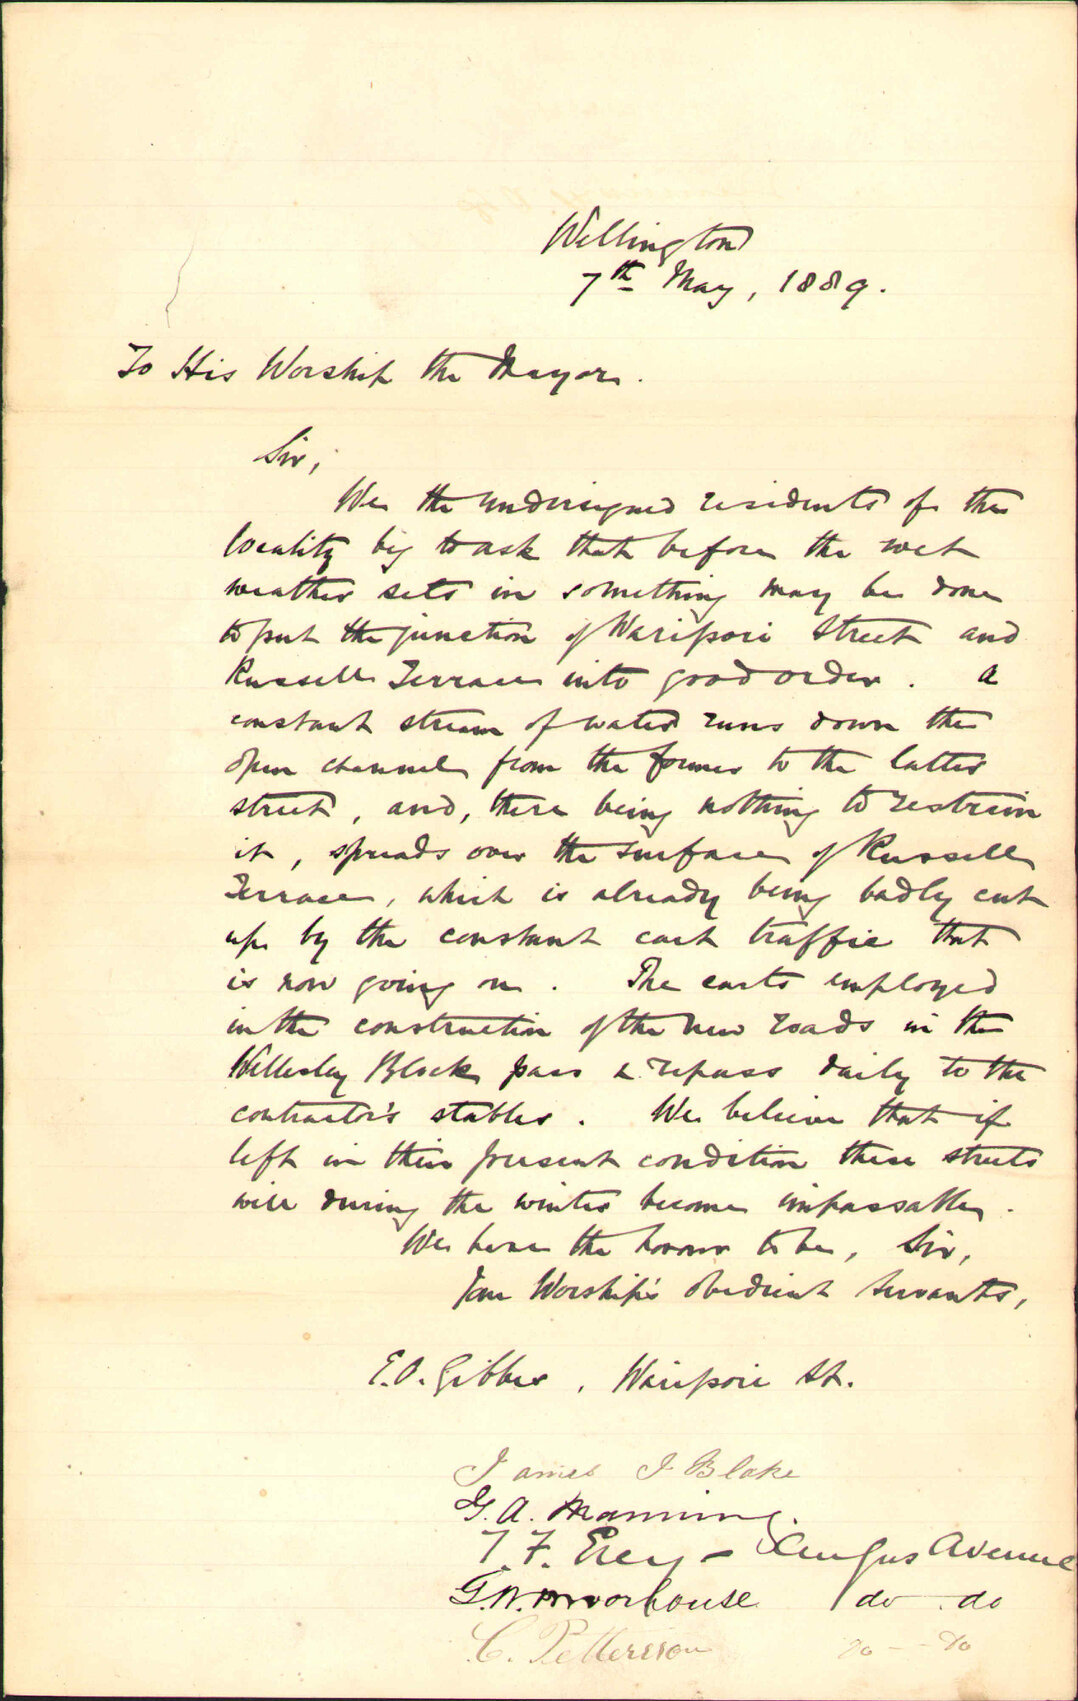 Wellington
7th May, 1889.
To His Worship the Mayor.
Sir,
We the undersigned residents of the
locality beg to ask that before the wet
weather sets in something may be done
to put the junction of Waripori Street and
Russell Terrace into good order. A
constant stream of water runs down the
open channel from the former to the latter
street, and, there being nothing to restrain
it, spreads over the surface of Russell
Terrace, which is already being badly cut
up by the constant cart traffic that
is now going on. The carts employed
in the construction of the new roads in the
Wellesley Block pass & repass daily to the
contractor's stables. We believe that if
left in their present condition these streets
will during the winter become impassable.
We have the honour to be, Sir,
Your Worship's obedient servants,
E.O. Gibbes, Waripori St.
James J Blake
G. A. Manning.
T. F. Avenue
G.W. Moorhouse do do
C. Petterson do - do